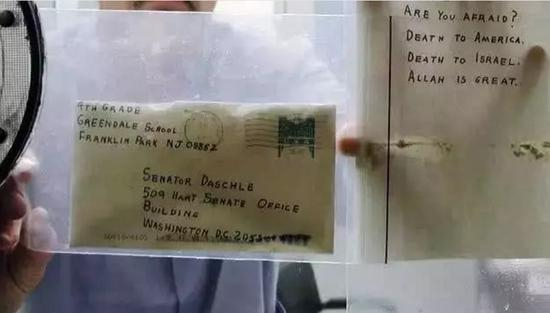 4TH GRADE
GREENDALE SCHOOL
FRANKLIN PARK NJ 08852
SENATOR DASCHLE
509 HART SENATE OFFICE
BUILDING
WASHINGTON D.C. 205
ARE YOU AFRAID?
DEATH TO AMERICA.
DEATH TO ISRAEL.
ALLAH IS GREAT.